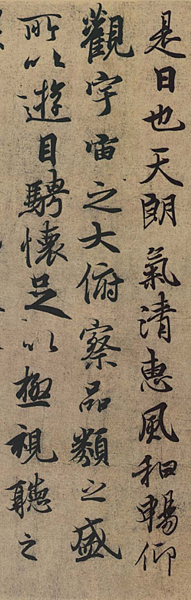 是日也天朗氣清惠風和暢仰
觀宇宙之大俯察品類之盛
所以遊目騁懷足以極視聽之